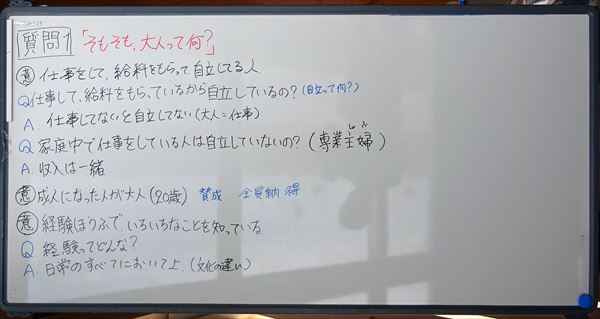 質問1 「そもそも、大人って何？」
意 仕事をして、給料をもらって、自立してる人
Q 仕事して、給料をもらっているから自立しているの？(自立って何？)
A. 仕事してないと自立してない(大人=仕事)
Q 家庭中で仕事をしている人は自立していないの？(専業主婦)
しゅ ふ
A. 収入は一緒
意 成人になった人が大人(20歳) 賛成 全員納得
意 経験ほうふで、いろいちなことを知っている
Q 経験ってどんな？
A. 日常のすべてにおいて上、(文化の違い)